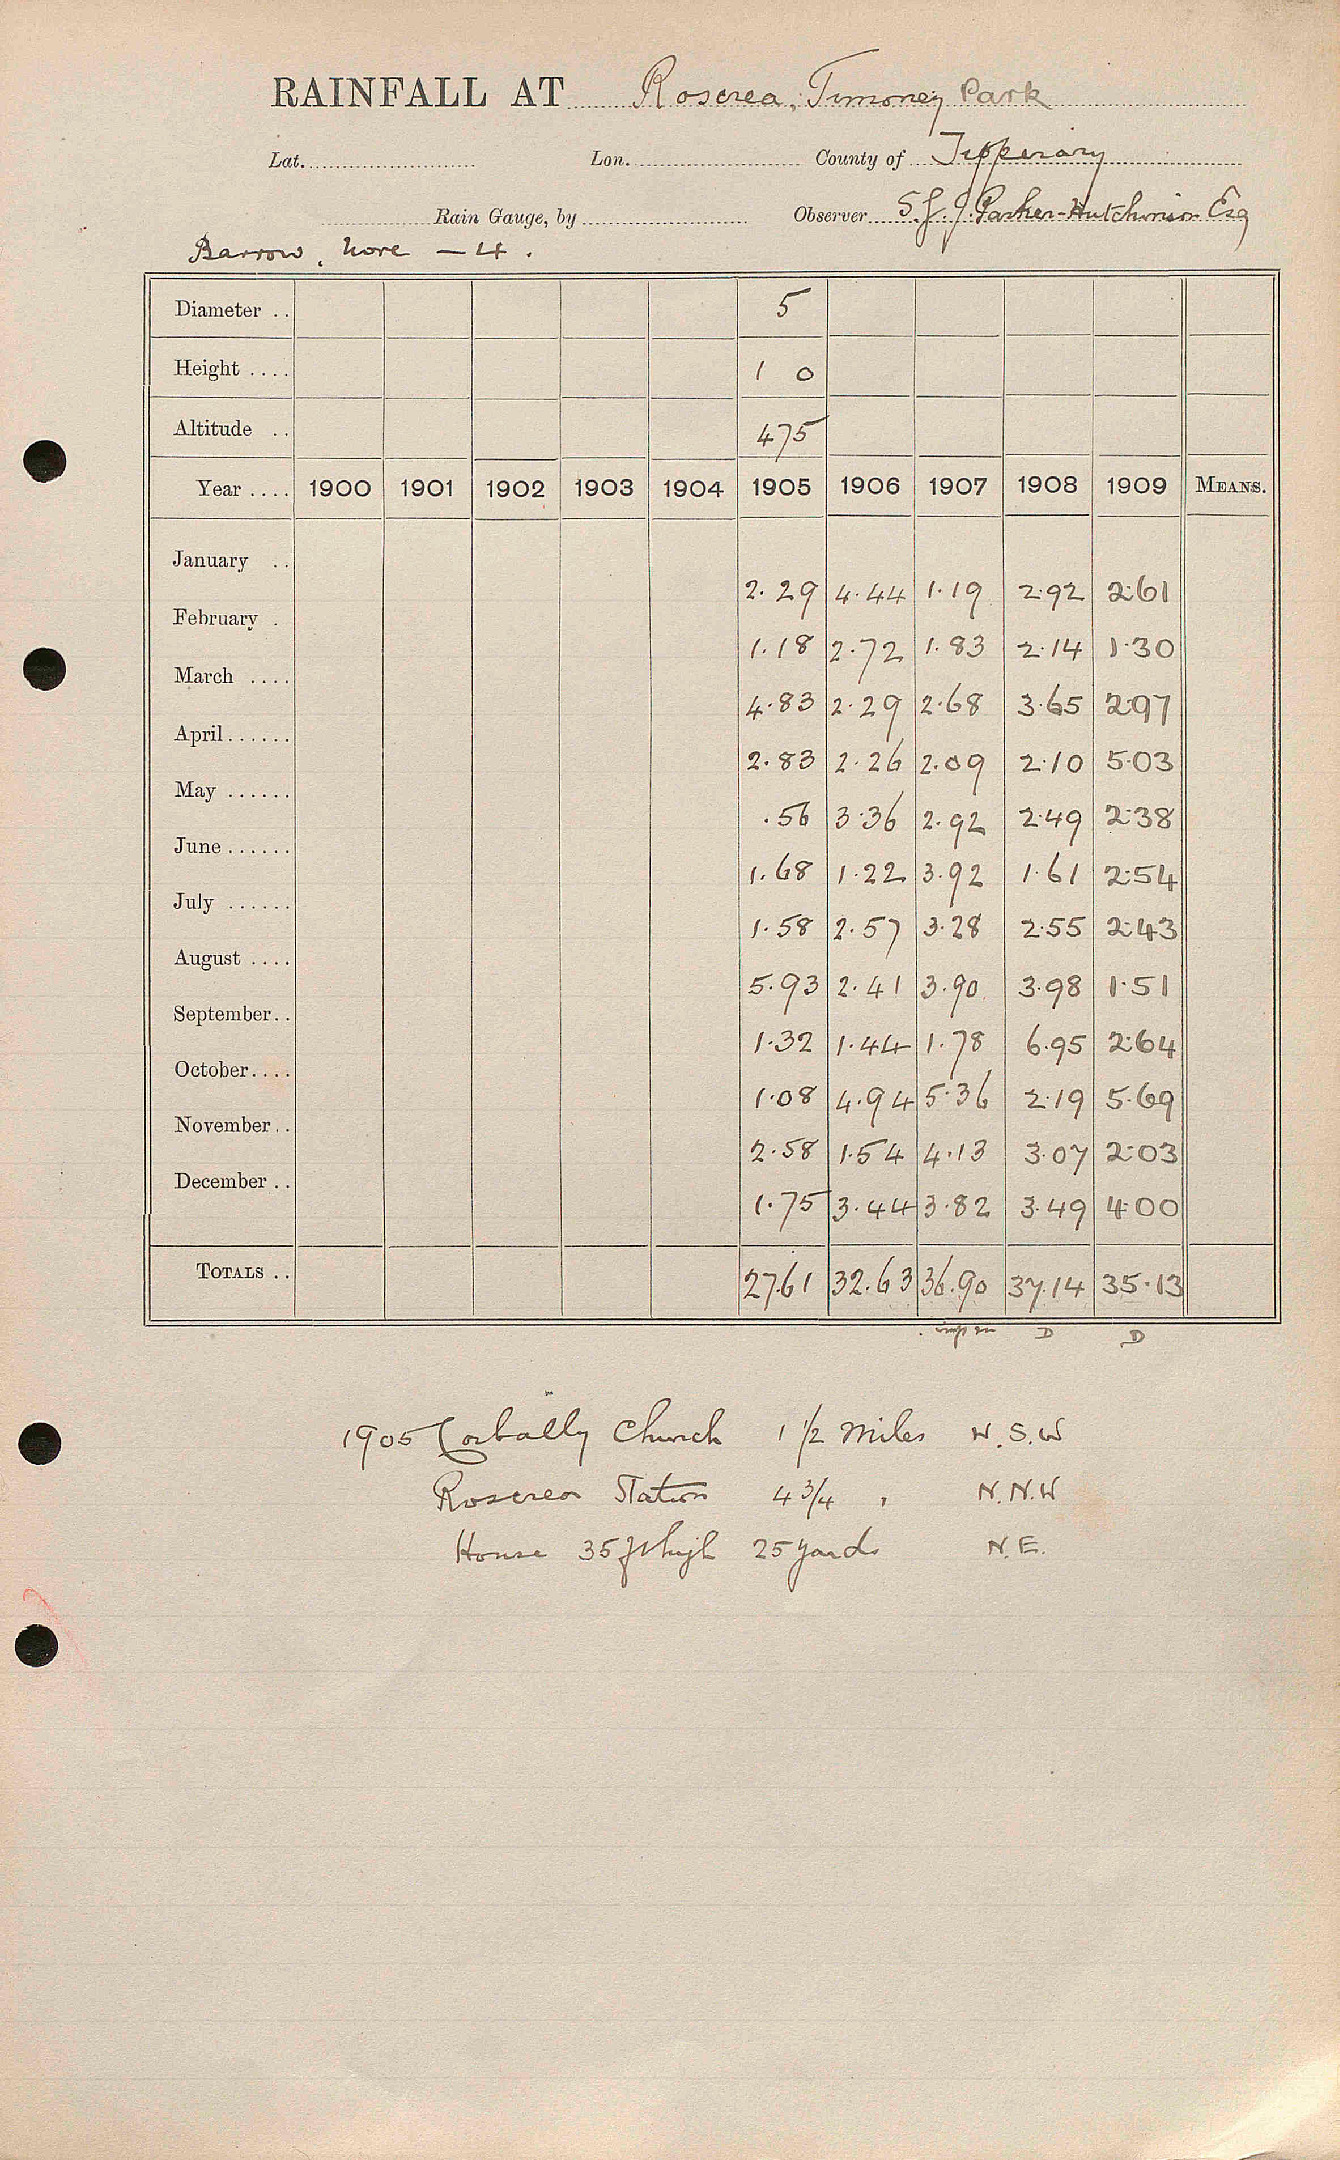 RAINFALL AT Roscrea, Timoney Park
Lat. Lon. County of Tipperary
Rain Gauge, by Observer S. J. J. Parker-Hutchinson Esq
Barrow, Nore — 4.
Diameter .. 5
Height .... 1 0
Altitude .. 475
Year .... 1900 1901 1902 1903 1904 1905 1906 1907 1908 1909 MEANS.
January .. 2.29 4.44 1.19 2.92 2.61
February . 1.18 2.72 1.83 2.14 1.30
March .... 4.83 2.29 2.68 3.65 2.97
April...... 2.83 2.26 2.09 2.10 5.03
May ...... .56 3.36 2.92 2.49 2.38
June ...... 1.68 1.22 3.92 1.61 2.54
July ...... 1.58 2.57 3.28 2.55 2.43
August .... 5.93 2.41 3.90 3.98 1.51
September.. 1.32 1.44 1.78 6.95 2.64
October.... 1.08 4.94 5.36 2.19 5.69
November.. 2.58 1.54 4.13 3.07 2.03
December .. 1.75 3.44 3.82 3.49 4.00
TOTALS .. 27.61 32.63 36.90 37.14 35.13
D D
1905 Corbally Church 1 1/2 miles W.S.W
Roscrea Station 4 3/4 " N.N.W
House 35 ft high 25 yards N.E.